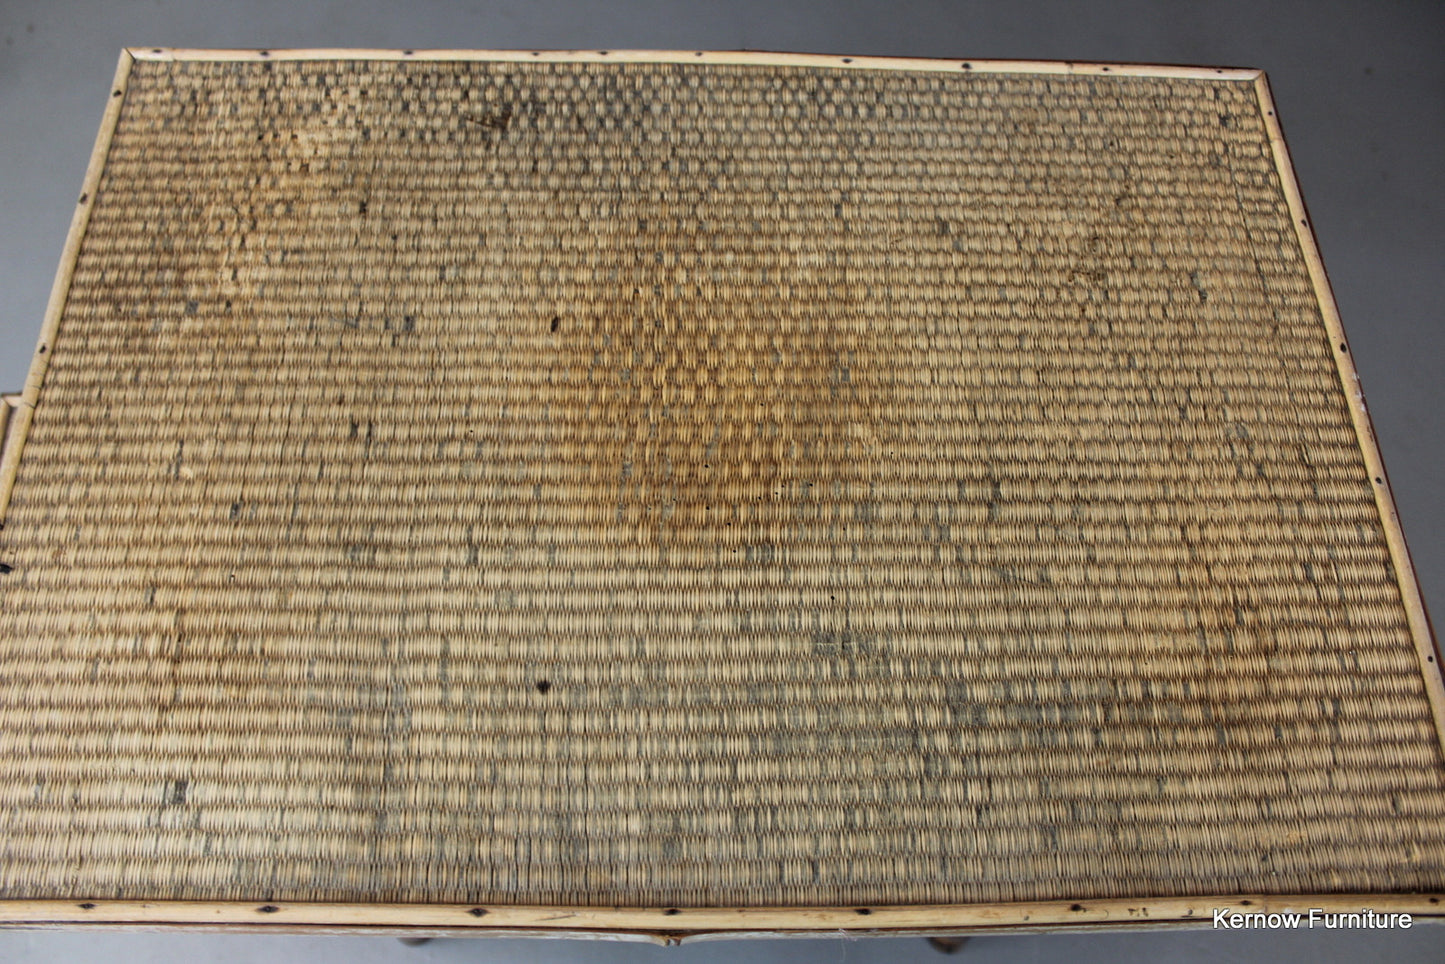 Kernow Furniture